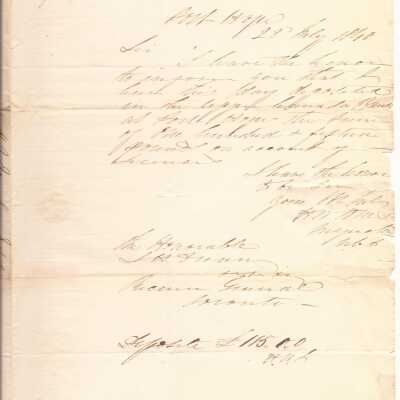 Port Hope
Sir I have the honor
to inform you that I
have this day deposited
in the Upper Canada Bank
at Port Hope the sum
of One hundred & fifteen
pounds on account of
Licenses
I have the honor
to be Sir
your
Inspector
The Honorable
Receiver General
Toronto
Deposite £ 115.0.0